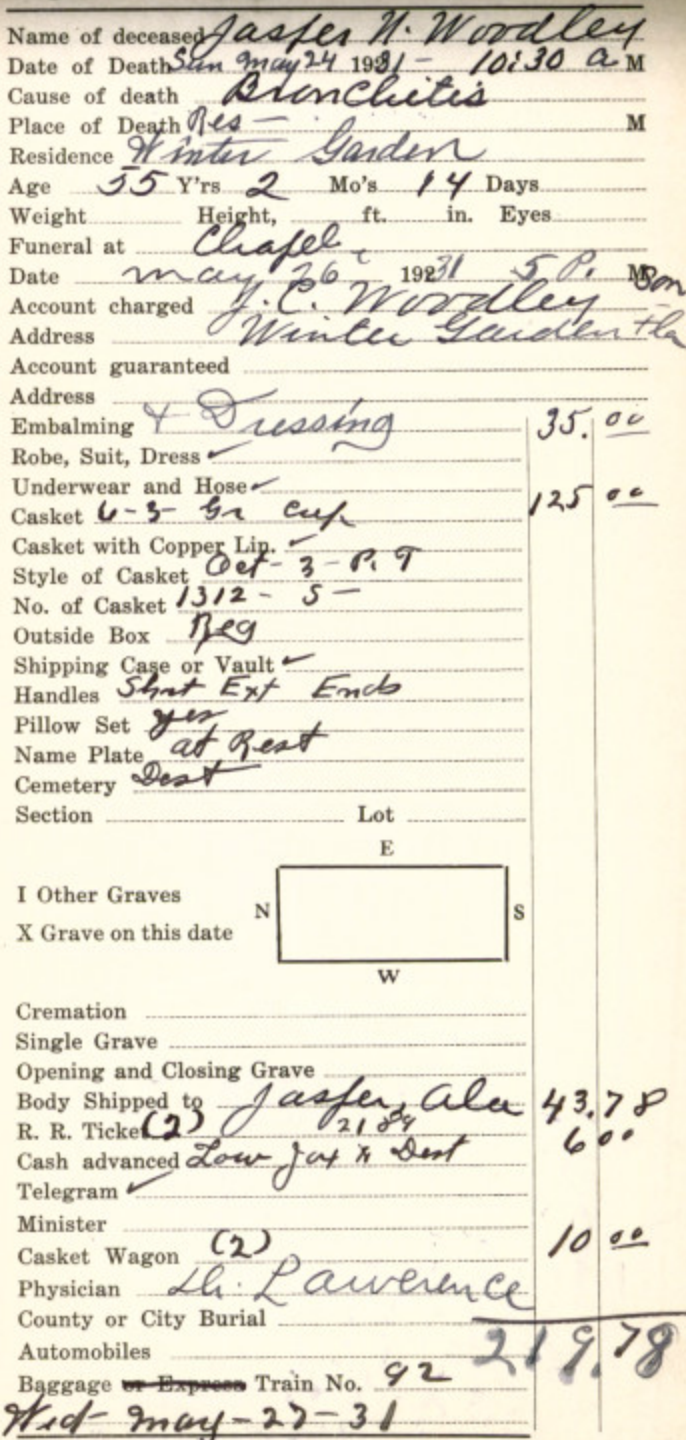 Name of deceased Jasper N. Woodley
Date of Death Sun May 24 1931 - 10:30 a M
Cause of death Bronchitis
Place of Death Res - M
Residence Winter Garden
Age 55 Y'rs 2 Mo's 14 Days
Weight Height, ft. in. Eyes
Funeral at Chapel
Date May 26 1931 5 P. M Son
Account charged J. C. Woodley
Address Winter Garden Fla
Account guaranteed
Address
Embalming + Dressing 35.00
Robe, Suit, Dress ✓
Underwear and Hose ✓
Casket 6-3 Gr Crep 125 00
Casket with Copper Lin. ✓
Style of Casket Oct - 3 - P. T
No. of Casket 1312 - S -
Outside Box Reg
Shipping Case or Vault ✓
Handles Short Ext Ends
Pillow Set yes
Name Plate at Rest
Cemetery Dest
Section Lot
E
I Other Graves
N S
X Grave on this date
W
Cremation
Single Grave
Opening and Closing Grave
Body Shipped to Jasper, Ala 43.78
R. R. Ticket (2) 2189
Cash advanced Low Jax Dest 6 00
Telegram ✓
Minister
Casket Wagon (2) 10 00
Physician Dr. Lawerence
County or City Burial
Automobiles 219.78
Baggage or Express Train No. 92
Wed - May - 27 - 31